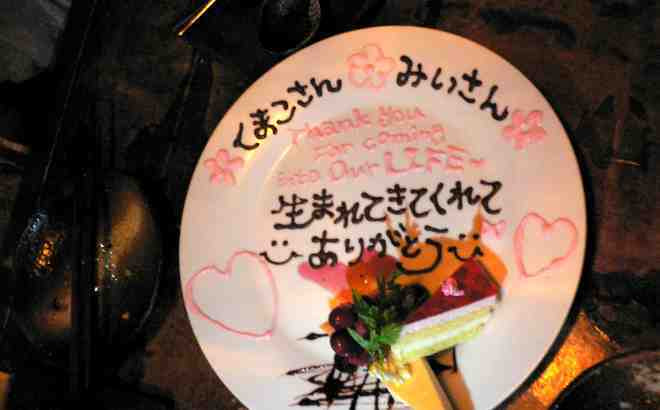 くまこさん みいさん
Thank you
For coming
into Our LIFE~
生まれてきてくれて
ありがとう